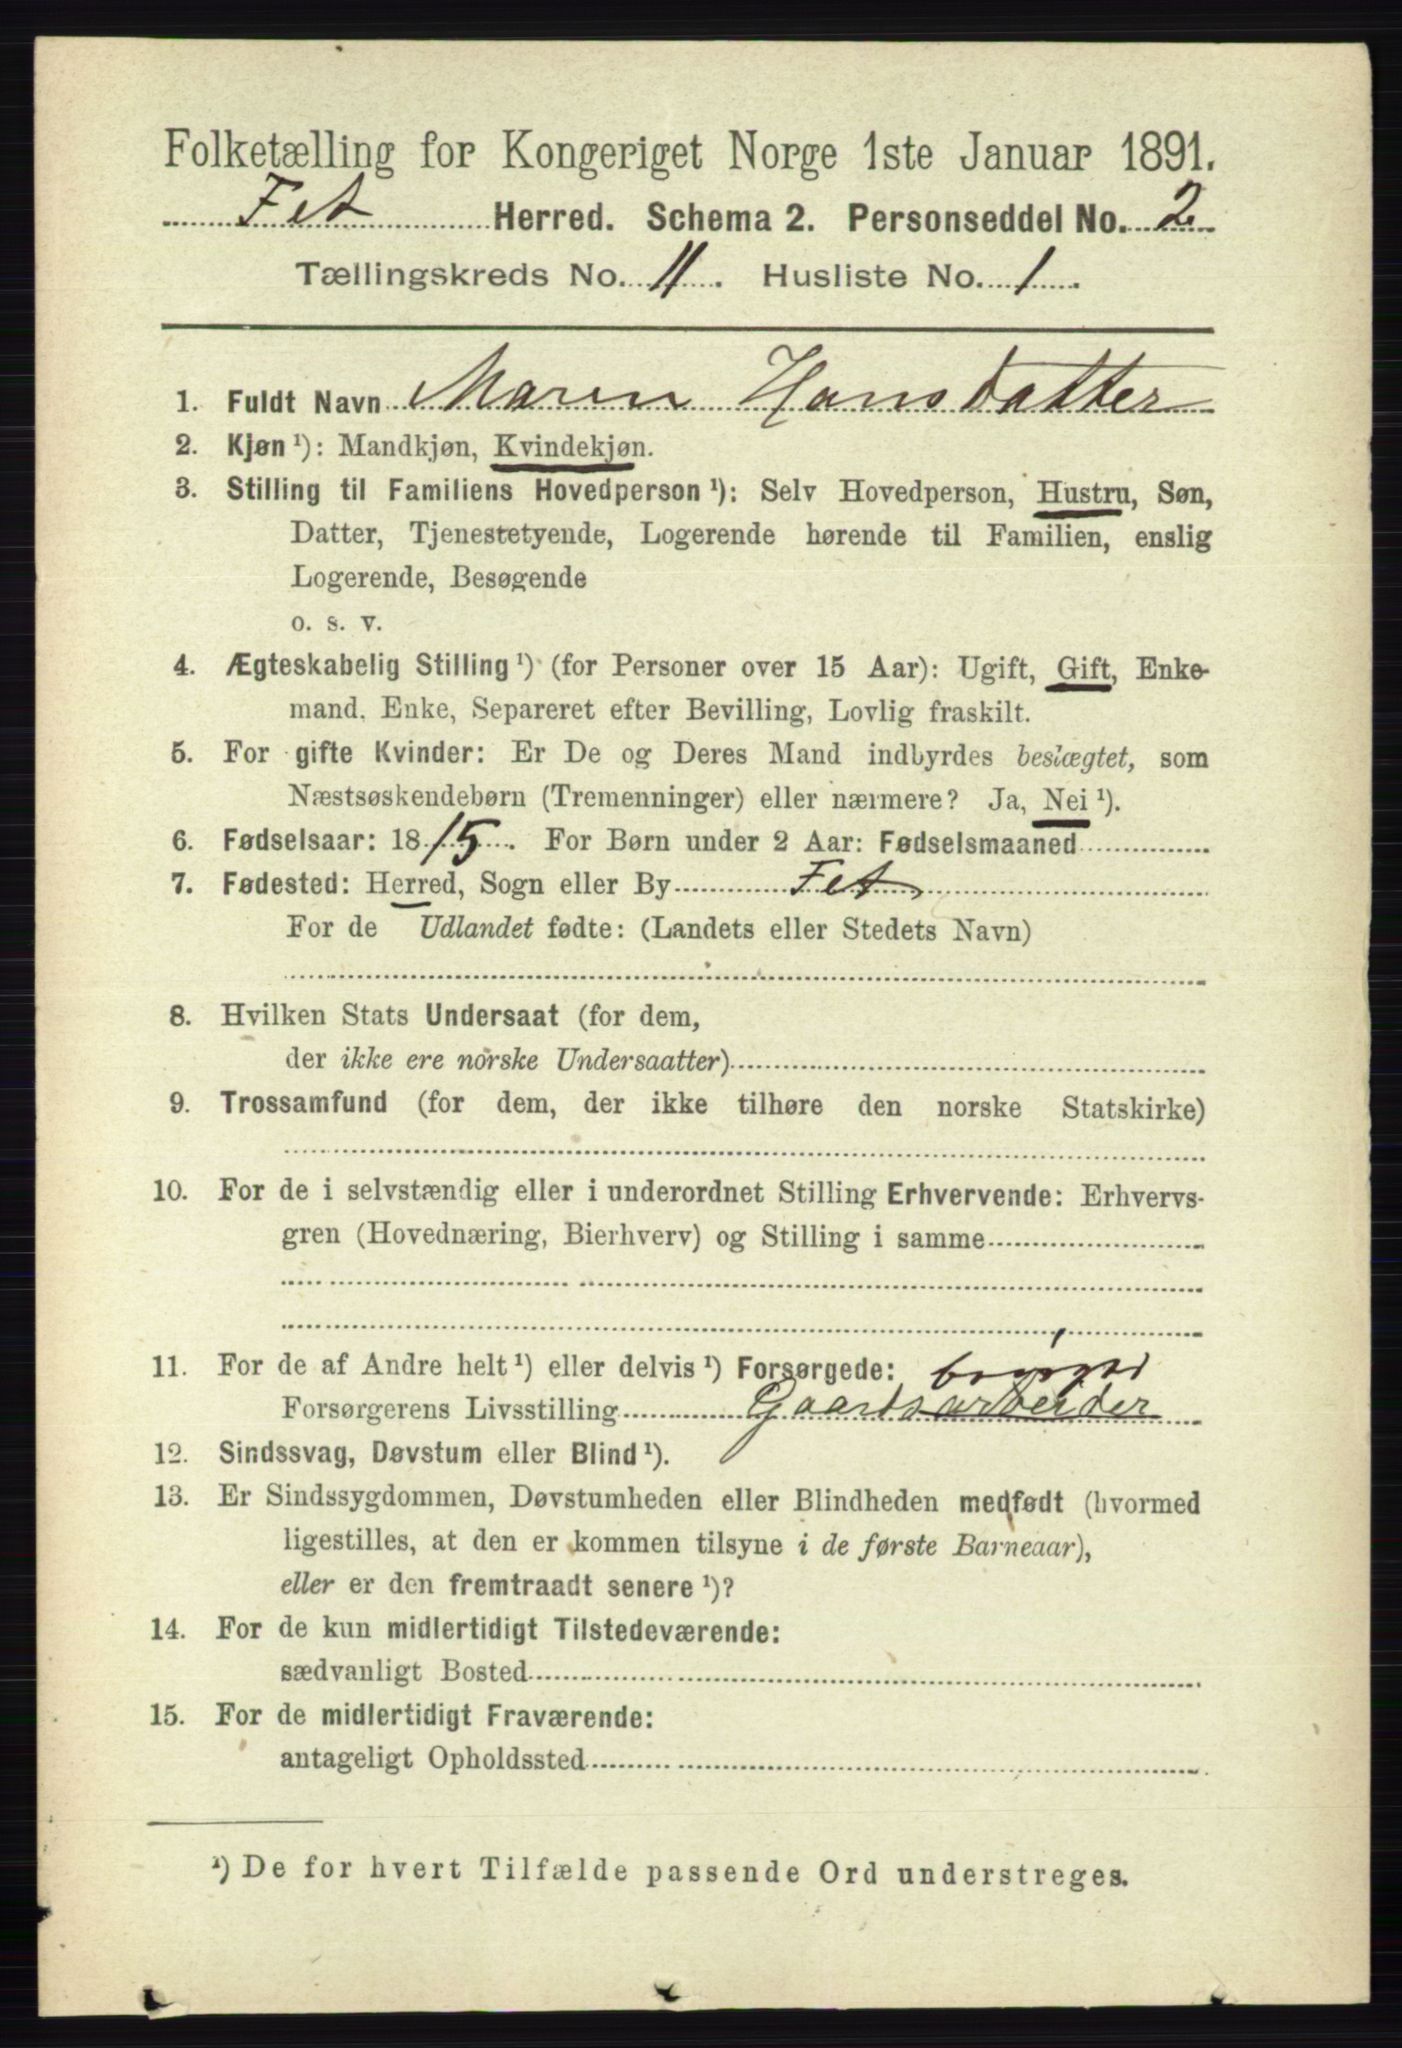 Folketælling for Kongeriget Norge 1ste Januar 1891.
Fet Herred. Schema 2. Personseddel No. 2
Tællingskreds No. 11. Husliste No. 1
1. Fuldt Navn Maren Hansdatter
2. Kjøn ¹): Mandkjøn, Kvindekjøn.
3. Stilling til Familiens Hovedperson ¹): Selv Hovedperson, Hustru, Søn,
Datter, Tjenestetyende, Logerende hørende til Familien, enslig
Logerende, Besøgende
o. s. v.
4. Ægteskabelig Stilling ¹) (for Personer over 15 Aar): Ugift, Gift, Enke-
mand, Enke, Separeret efter Bevilling, Lovlig fraskilt.
5. For gifte Kvinder: Er De og Deres Mand indbyrdes beslægtet, som
Næstsøskendebørn (Tremenninger) eller nærmere? Ja, Nei ¹).
6. Fødselsaar: 1815. For Børn under 2 Aar: Fødselsmaaned
7. Fødested: Herred, Sogn eller By Fet
For de Udlandet fødte: (Landets eller Stedets Navn)
8. Hvilken Stats Undersaat (for dem,
der ikke ere norske Undersaatter)
9. Trossamfund (for dem, der ikke tilhøre den norske Statskirke)
10. For de i selvstændig eller i underordnet Stilling Erhvervende: Erhvervs-
gren (Hovednæring, Bierhverv) og Stilling i samme
11. For de af Andre helt ¹) eller delvis ¹) Forsørgede:
Forsørgerens Livsstilling Gaardsarbeider
12. Sindssvag, Døvstum eller Blind ¹).
13. Er Sindssygdommen, Døvstumheden eller Blindheden medfødt (hvormed
ligestilles, at den er kommen tilsyne i de første Barneaar),
eller er den fremtraadt senere ¹)?
14. For de kun midlertidigt Tilstedeværende:
sædvanligt Bosted
15. For de midlertidigt Fraværende:
antageligt Opholdssted
¹) De for hvert Tilfælde passende Ord understreges.